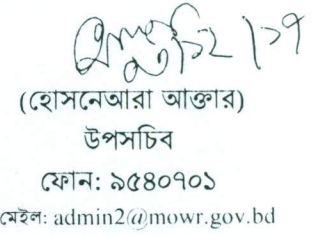 (হোসনেআরা আক্তার)
উপসচিব
ফোন: ৯৫৪০৭০১
মেইল: admin2@mowr.gov.bd